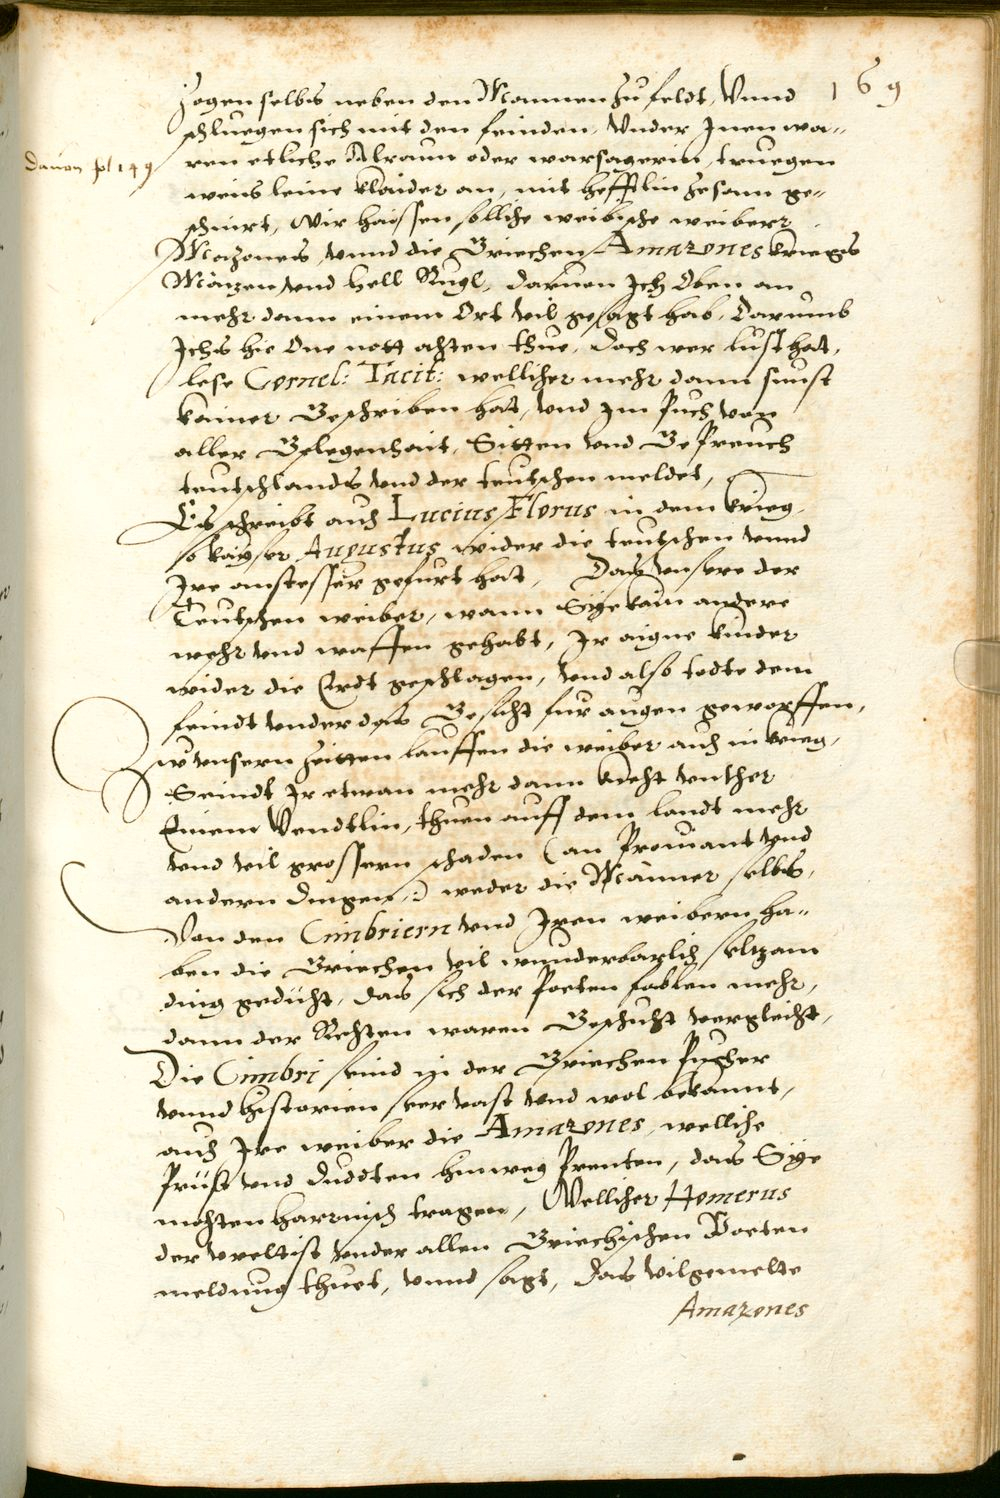 169
zogen selbs neben den Mannen zu feldt, Vnnd
schluegen sich mit den feinden, Vnder Jnen wa-
dauon pl 149
ren etliche Alraun oder warsagerin, truegen
weis leine klaider an, mit hefftlin zesam ge-
schnirt, Wir haissen solliche weibische weiber
Mazones, vnnd die Griechen Amazones kriegs
Mätzen vnd hell Rügl, daruon Jch Oben an
mehr dann einem Ort vil gesagt hab, Darumb
Jchs hie One nott achten thue, doch wer lust hat,
lese Cornel: Tacit: wellicher mehr dann sunst
kainer Beschriben hat, vnd Jm Puch von
aller Gelegenhait, Sitten vnd Gepreuch
teutschlands vnd der teutschen meldet,
Es schreibt auch Lucius Florus in dem krieg
so kayser Augustus wider die teutschen vnnd
Jre anstesser gefurt hat, Das vnsere der
Teutschen weiber, wann Sye kain andere
wehr vnd waffen gehabt, Jr aigne kinder
wider die Erdt geschlagen, vnd also todte dem
feindt vnder das Gesicht fur augen geworffen,
Zu vnsern zeitten lauffen die weiber auch in krieg,
Seindt Jr etwan mehr dann knecht vnther
Einem Vendtlin, thuen auff dem landt mehr
vnd vil grossern schaden (an Prouiant vnd
andern dingen:) weder die Männer selbs,
Von den Cimbriern vnd Jren weibern ha-
ben die Griechen vil wunderbarlich seltzam
ding gedicht, das sich der Poeten fablen mehr,
dann der Rechten waren Geschicht vergleicht,
Die Cimbri seind in der Griechen Pücher
vnnd historien seer vast vnd wol bekannt,
auch Jre weiber die Amazones, welliche
Prüst vnd dudten hinweg Prenten, das Sye
mochten harnisch tragen, Wellicher Homerus
der weltist vnder allen Griechischen Poeten
meldung thuet, vnnd sagt, das vilgemelte
Amazones